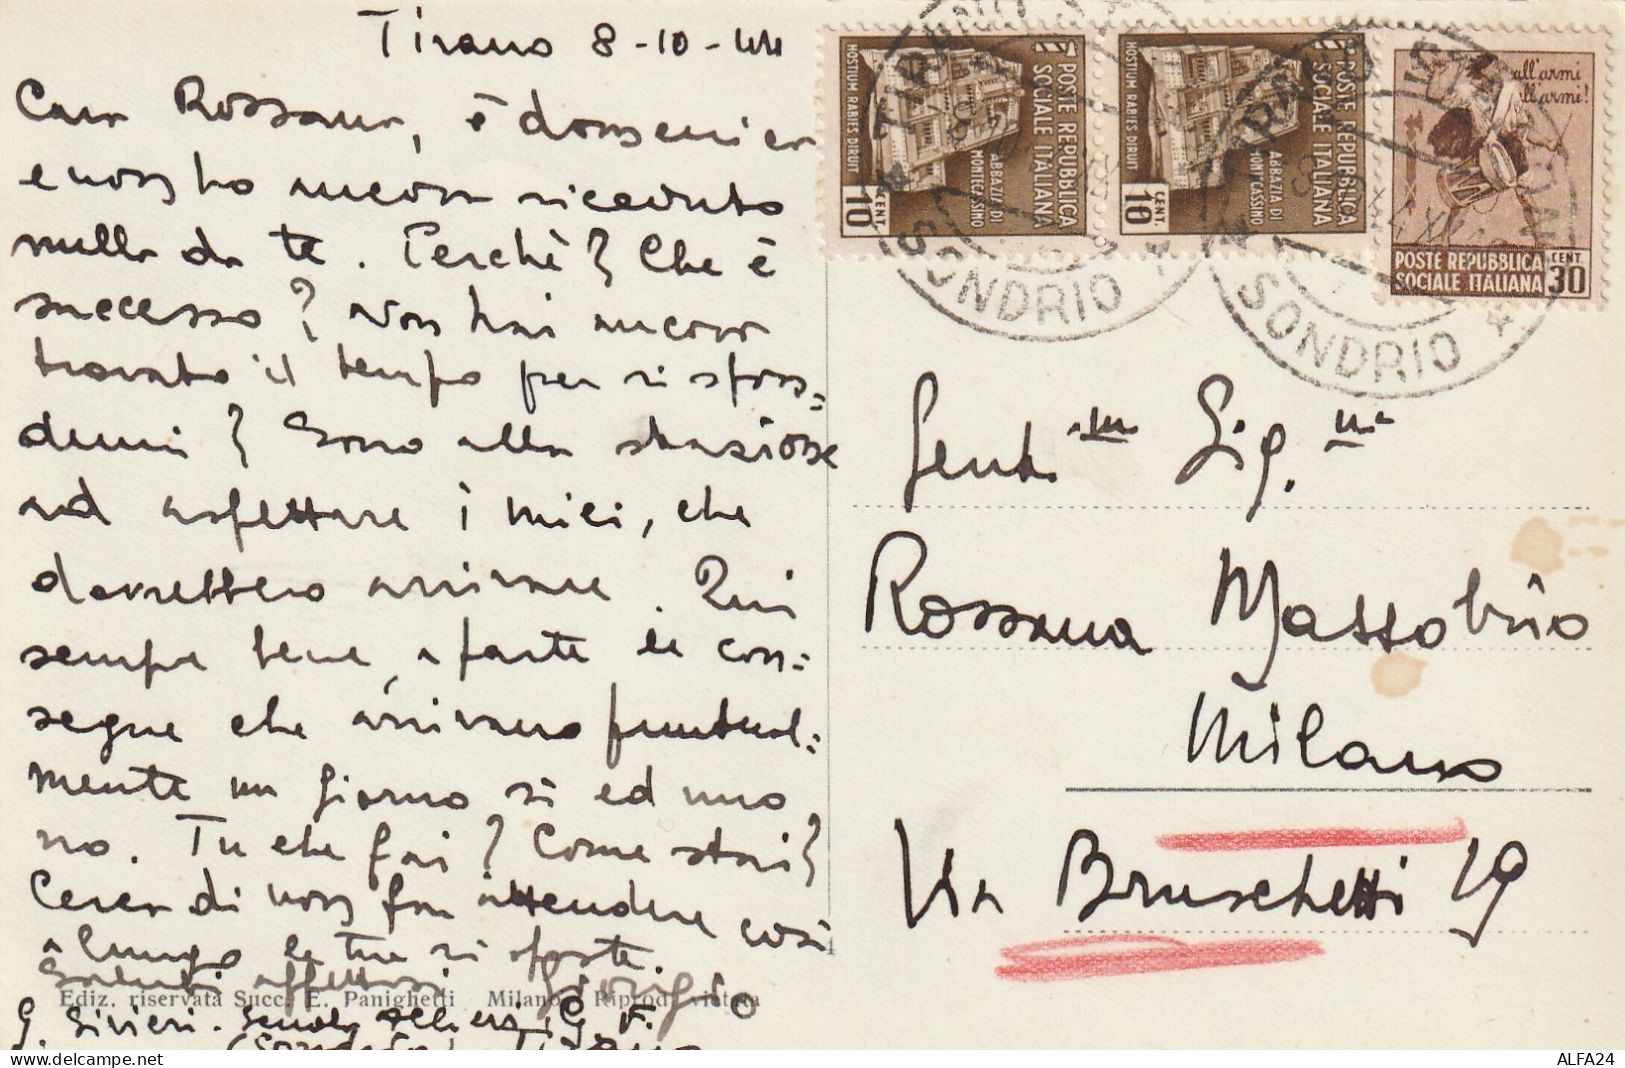 Tirano 8-10-44
Cara Rossana, è domenica
e non ho ancora ricevuto
nulla da te. Perchè? Che è
successo? Non hai ancora
trovato il tempo per rispon=
dermi? Sono alla stazione
ad aspettare i miei, che
dovrebbero arrivare. Qui
sempre bene, a parte le con=
segne che arrivano puntual=
mente un giorno si ed uno
no. Tu che fai? Come stai?
Cerca di non far attendere così
a lungo le tue risposte.
Saluti affettuosi Giorgio
Ediz. riservata Succ. E. Panighetti Milano Riprod. vietata
G. Sivieri. Scuola Allievi G. F.
(Sondrio) Tirano
POSTE REPUBBLICA
SOCIALE ITALIANA
ABBAZIA DI
MONTECASSINO
HOSTIUM RABIES DIRUIT
CENT.
10
POSTE REPUBBLICA
SOCIALE ITALIANA
ABBAZIA DI
MONTECASSINO
HOSTIUM RABIES DIRUIT
CENT.
10
all'armi
all'armi!
POSTE REPUBBLICA
SOCIALE ITALIANA
CENT.
30
TIRANO
* SONDRIO *
TIRANO
* SONDRIO *
Gent.ma Sig.na
Rossana Massobrio
Milano
Via Bruschetti 19
ALFA24